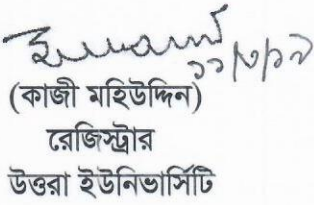 (কাজী মহিউদ্দিন)
রেজিস্ট্রার
উত্তরা ইউনিভার্সিটি